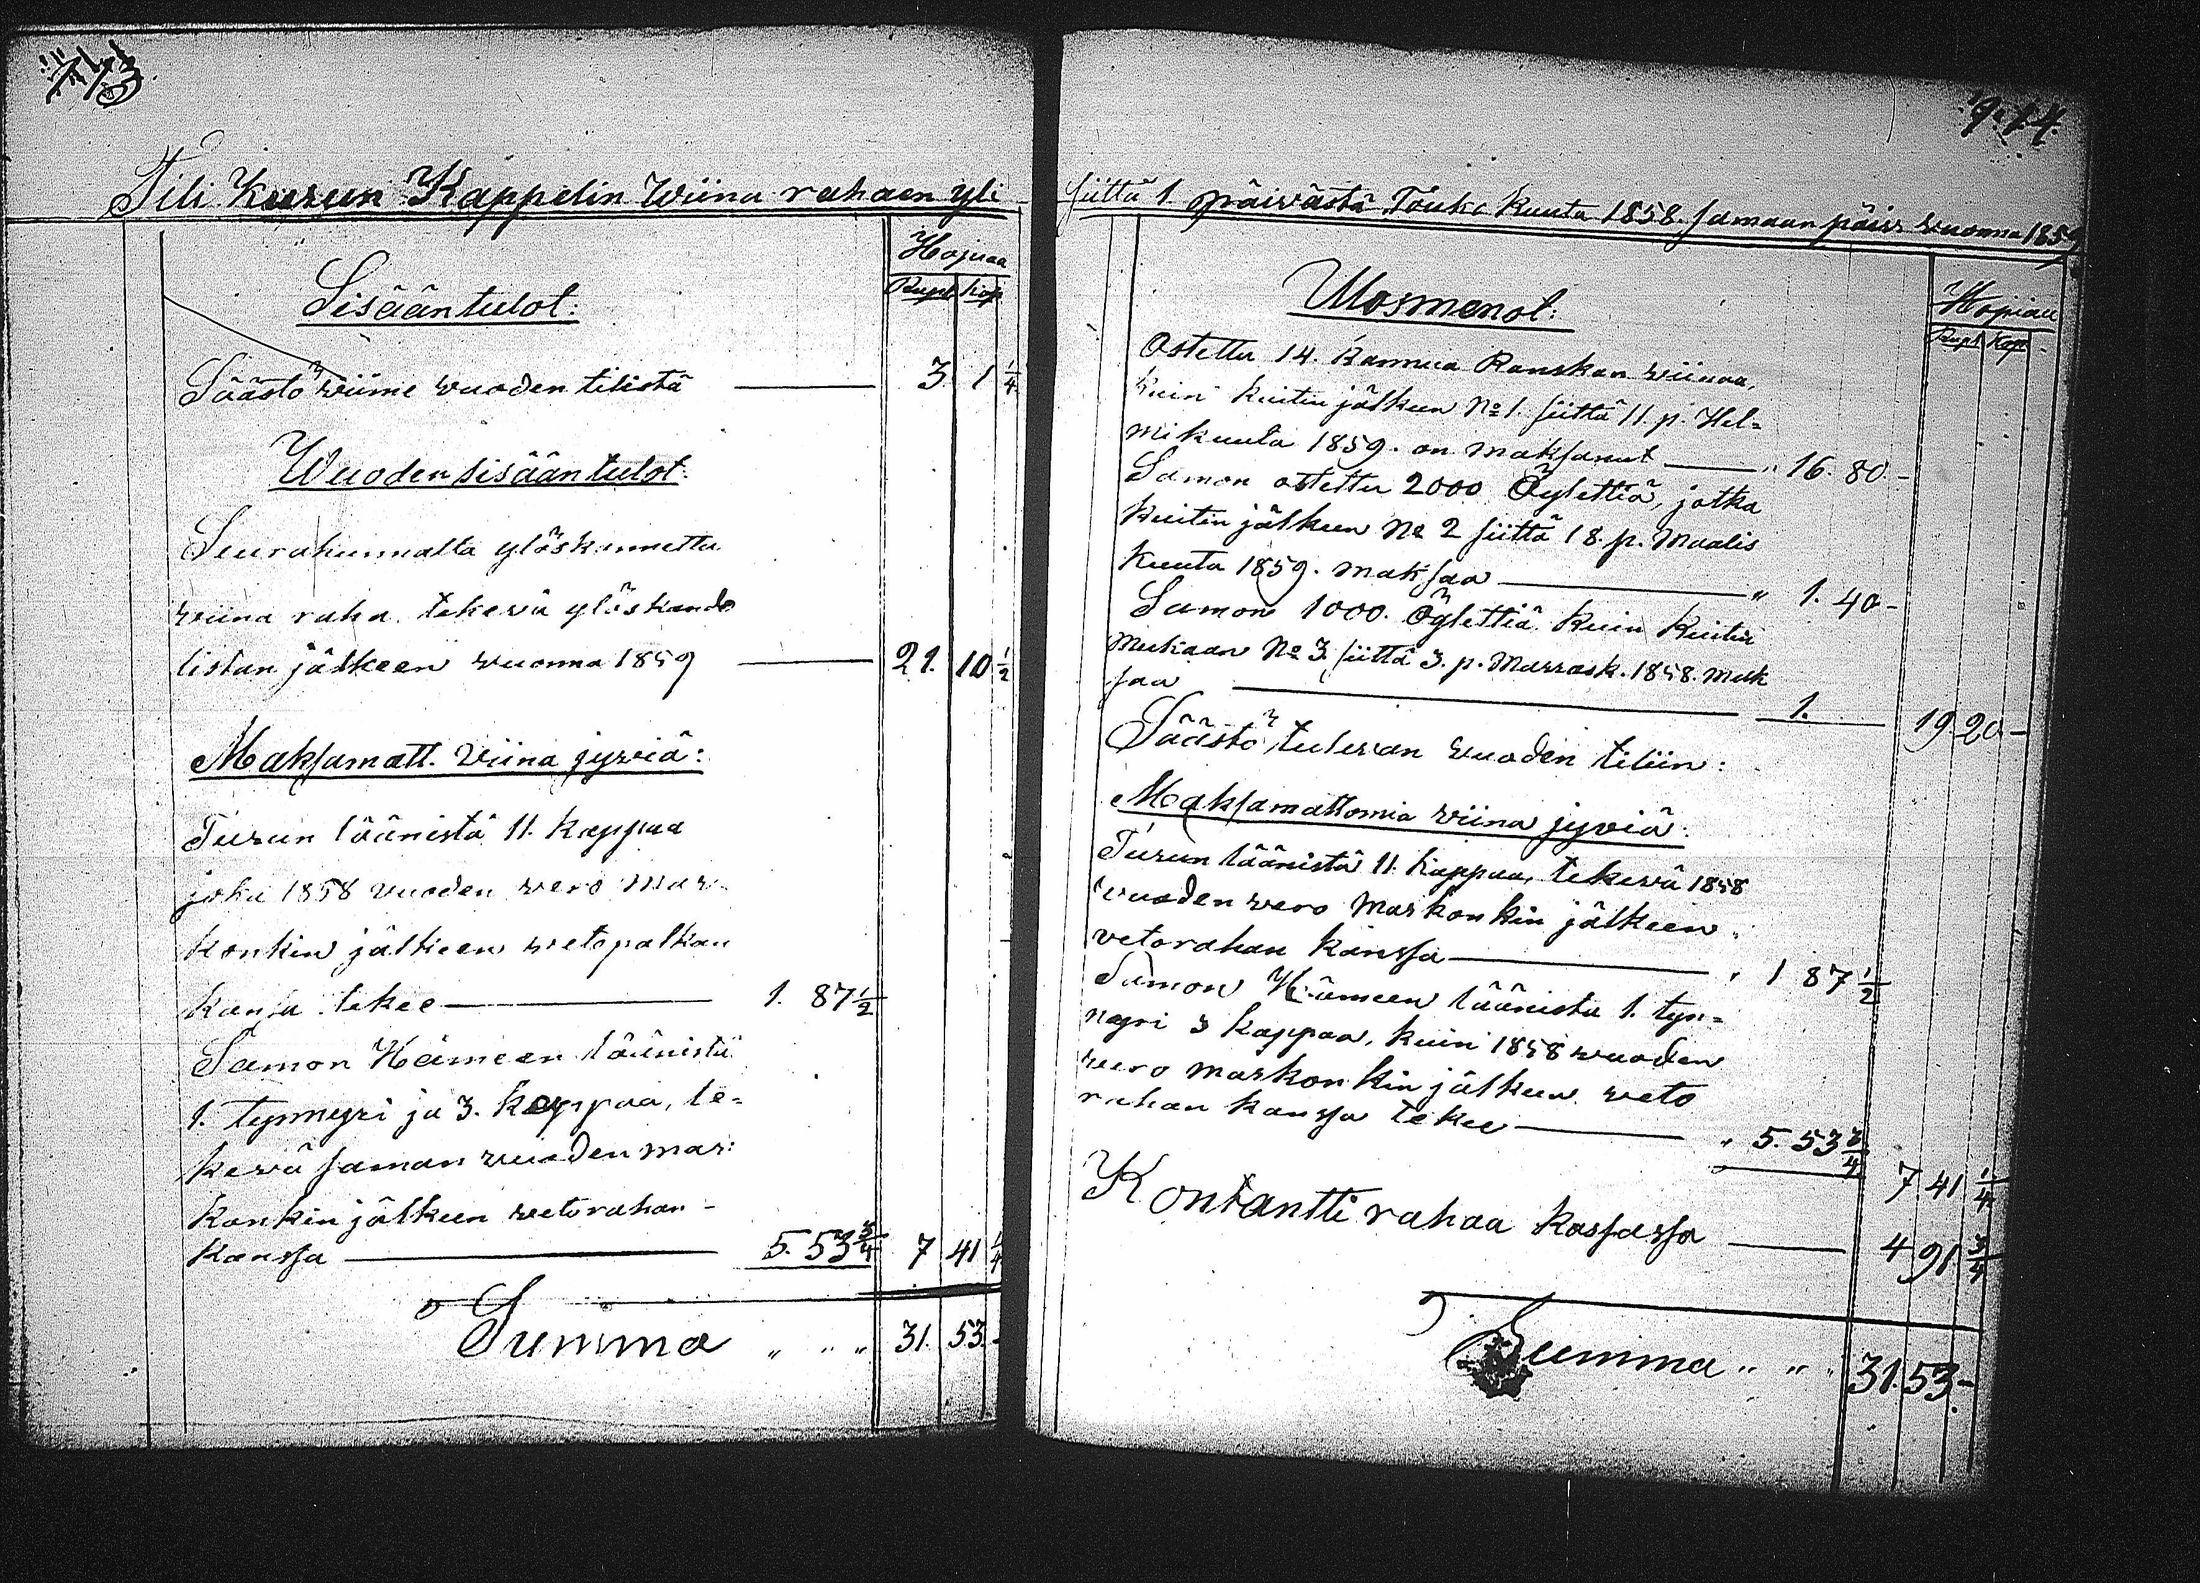 Tili Kurun Kappelin Wiina rahaen yli
Hopiaa
Rupl. Kop
Sisääntulot:
Säästö wiime wuoden tilistä 3. 1 1/4
Wuoden sisääntulot:
Seurakunnalta ylöskannettu
wiina raha tekevä ylöskando
listan jälkeen wuonna 1859 21. 10 1/2
Maksamatt. wiina jywiä:
Turun läänistä 11. kappaa
joka 1858 vuoden wero mar-
konkin jälkeen wetopalkan
kansa tekee 1. 87 1/2
Samon Hämeen läänistä
1. tynnyri ja 3. kappaa, te=
kevä saman wuoden mar:
konkin jälkeen wetorahan-
kanssa 5. 53 3/4 7 41 1/4
Summa " " " 31. 53.-
7.14.
siittä 1. päivästä Touko kuuta 1858. samaan päiw wuonna 1859
Hopiaa
Rupl. Kop.
Ulosmenot:
Ostettu 14. kannua Ranskan wiinaa,
kuin kuitin jälkeen No 1. siittä 11. p. Hel=
mikuuta 1859. on maksanut " 16. 80.-
Samon ostettu 2000 Öylettiä, jotka
kuitin jälkeen No 2 siittä 18. p. Maalis
kuuta 1859. maksaa " 1. 40-
Samon 1000. Öylettiä kuin kuitin
mukaan No 3. siittä 3. p. Marrask. 1858. mak
saa 1. 19 20-
Säästö tulevan wuoden tiliin:
Maksamattomia wiina jyviä:
Turun läänistä 11. kappaa, tekevä 1858
wuoden wero markonkin jälkeen
vetorahan kanssa " 1 87 1/2
Samon Hämeen läänistä 1. tyn=
nyri 3 kappaa, kuin 1858 wuoden
wero markonkin jälkeen weto
rahan kanssa tekee " 5. 53 3/4
7 41 1/4
Kontantti rahaa kassassa 4 91 3/4
Summa " " " 31. 53-